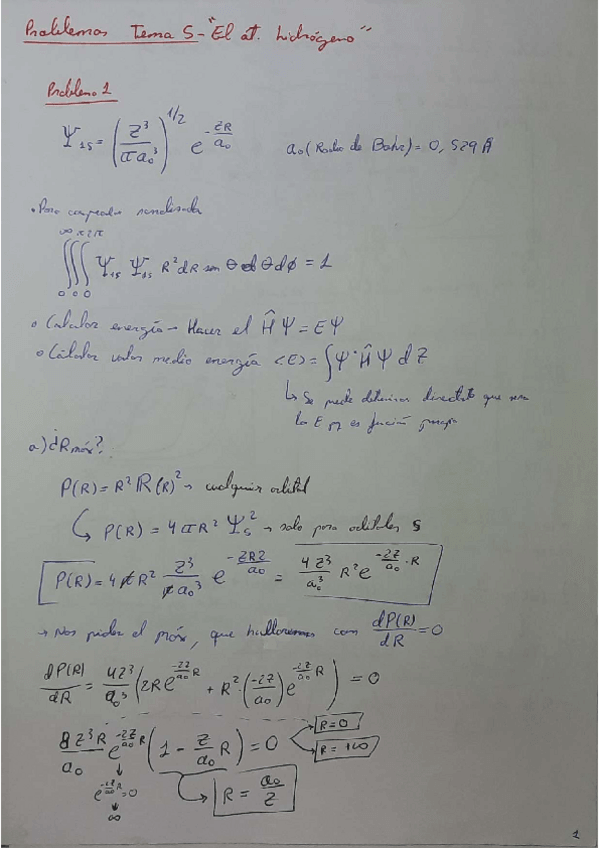 Problemas Tema 5 - "El at. hidrógeno"
Problema 1
Ψ₁s = (Z³/πa₀³)^1/2 e^(-ZR/a₀)    a₀ (Radio de Bohr) = 0,529 Å
• Para comprobar normalizada
∞ π 2π
∫∫∫ Ψ₁s Ψ₁s R² dR sen θ dθ dϕ = 1
0 0 0
• Calcular energía → Hacer el ĤΨ = EΨ
• Calcular valor medio energía <E> = ∫Ψ* Ĥ Ψ dZ
↳ Se puede determinar que sera
la E pq es función propia
a) ¿Rmáx?:
P(R) = R² R(R)² → cualquier orbital
↳ P(R) = 4πR² Ψs² → solo para orbitales s
P(R) = 4πR² Z³/πa₀³ e^(-ZR2/a₀) = 4Z³/a₀³ R² e^(-2Z/a₀ · R)
→ Nos piden el máx, que hallaremos con dP(R)/dR = 0
dP(R)/dR = 4Z³/a₀³ (2R e^(-2Z/a₀ R) + R² · (-2Z/a₀) e^(-2Z/a₀ R)) = 0
8Z³R/a₀ e^(-2Z/a₀ R) (1 - Z/a₀ R) = 0 → R = 0
R = +∞
e^(-2Z/a₀ R) = 0
↓
∞
↳ R = a₀/Z
1